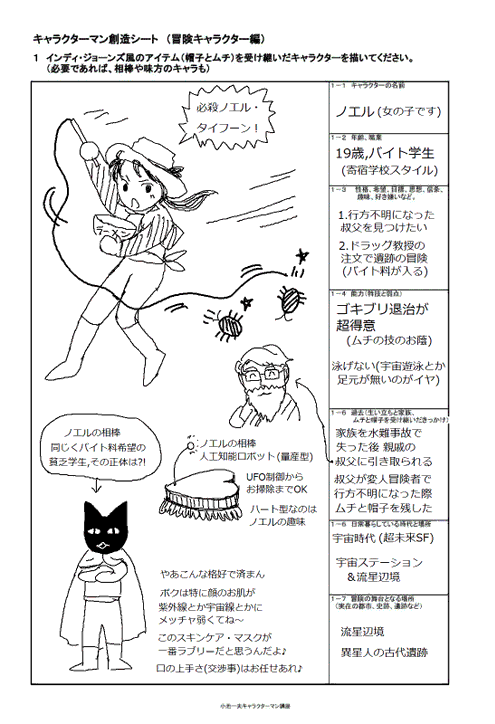 キャラクターマン創造シート （冒険キャラクター編）
１ インディ・ジョーンズ風のアイテム（帽子とムチ）を受け継いだキャラクターを描いてください。
（必要であれば、相棒や味方のキャラも）
必殺ノエル・
タイフーン！
１－１ キャラクターの名前
ノエル(女の子です)
１－２ 年齢、職業
19歳,バイト学生
(寄宿学校スタイル)
１－３ 性格、希望、目標、思想、信条、
趣味、好き嫌いなど。
1.行方不明になった
叔父を見つけたい
2.ドラッグ教授の
注文で遺跡の冒険
(バイト料が入る)
１－４ 能力（特技と弱点）
ゴキブリ退治が
超得意
(ムチの技のお蔭)
泳げない(宇宙遊泳とか
足元が無いのがイヤ)
１－６ 過去（生い立ちと家族、
ムチと帽子を受け継いだきっかけ）
家族を水難事故で
失った後 親戚の
叔父に引き取られる
叔父が変人冒険者で
行方不明になった際
ムチと帽子を残した
１－６ 日常暮らしている時代と場所
宇宙時代 (超未来SF)
宇宙ステーション
＆流星辺境
１－７ 冒険の舞台となる場所
（実在の都市、史跡、遺跡など）
流星辺境
異星人の古代遺跡
ノエルの相棒
同じくバイト料希望の
貧乏学生,その正体は?!
:ノエルの相棒
人工知能ロボット (量産型)
UFO制御から
お掃除までOK
ハート型なのは
ノエルの趣味
やあこんな格好で済まん
ボクは特に顔のお肌が
紫外線とか宇宙線とかに
メッチャ弱くてね～
このスキンケア・マスクが
一番ラブリーだと思うんだよ♪
口の上手さ(交渉事)はお任せあれ♪
小池一夫キャラクターマン講座